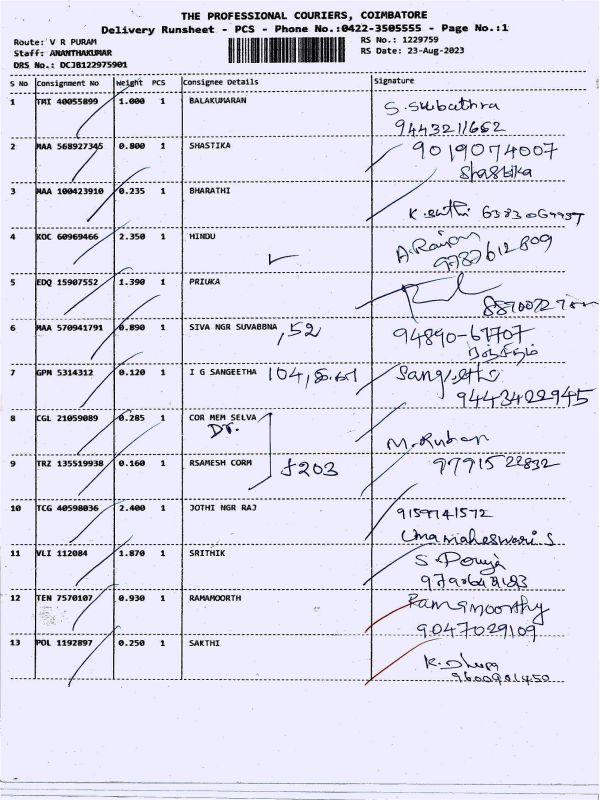 THE PROFESSIONAL COURIERS, COIMBATORE
Delivery Runsheet - PCS - Phone No.:0422-3505555 - Page No.:1
Route: V R PURAM
RS No.: 1229759
Staff: ANANTHAKUMAR
RS Date: 23-Aug-2023
DRS No.: DCJB122975901
S No Consignment No Weight PCS Consignee Details Signature
1 TMI 40055899 1.000 1 BALAKUMARAN S. Subathra
9443211662
2 MAA 568927345 0.800 1 SHASTIKA 9019074007
Shastika
3 MAA 100423910 0.235 1 BHARATHI
4 KOC 60969466 2.350 1 HINDU
9787612809
5 EDQ 15907552 1.390 1 PRIUKA
6 MAA 570941791 0.890 1 SIVA NGR SUVABBNA ,52 94890-67707
7 GPM 5314312 0.120 1 I G SANGEETHA 104, Sangeetha
9443422945
8 CGL 21059089 0.285 1 COR MEM SELVA
DT. M. Ruban
9 TRZ 135519938 0.160 1 RSAMESH CORM f203 9791522832
10 TCG 40598036 2.400 1 JOTHI NGR RAJ 9159741572
Umamaheswari S
11 VLI 112084 1.870 1 SRITHIK S. Pooja
12 TEN 7570107 0.930 1 RAMAMOORTH Ramamoorthy
9047029109
13 POL 1192897 0.250 1 SAKTHI